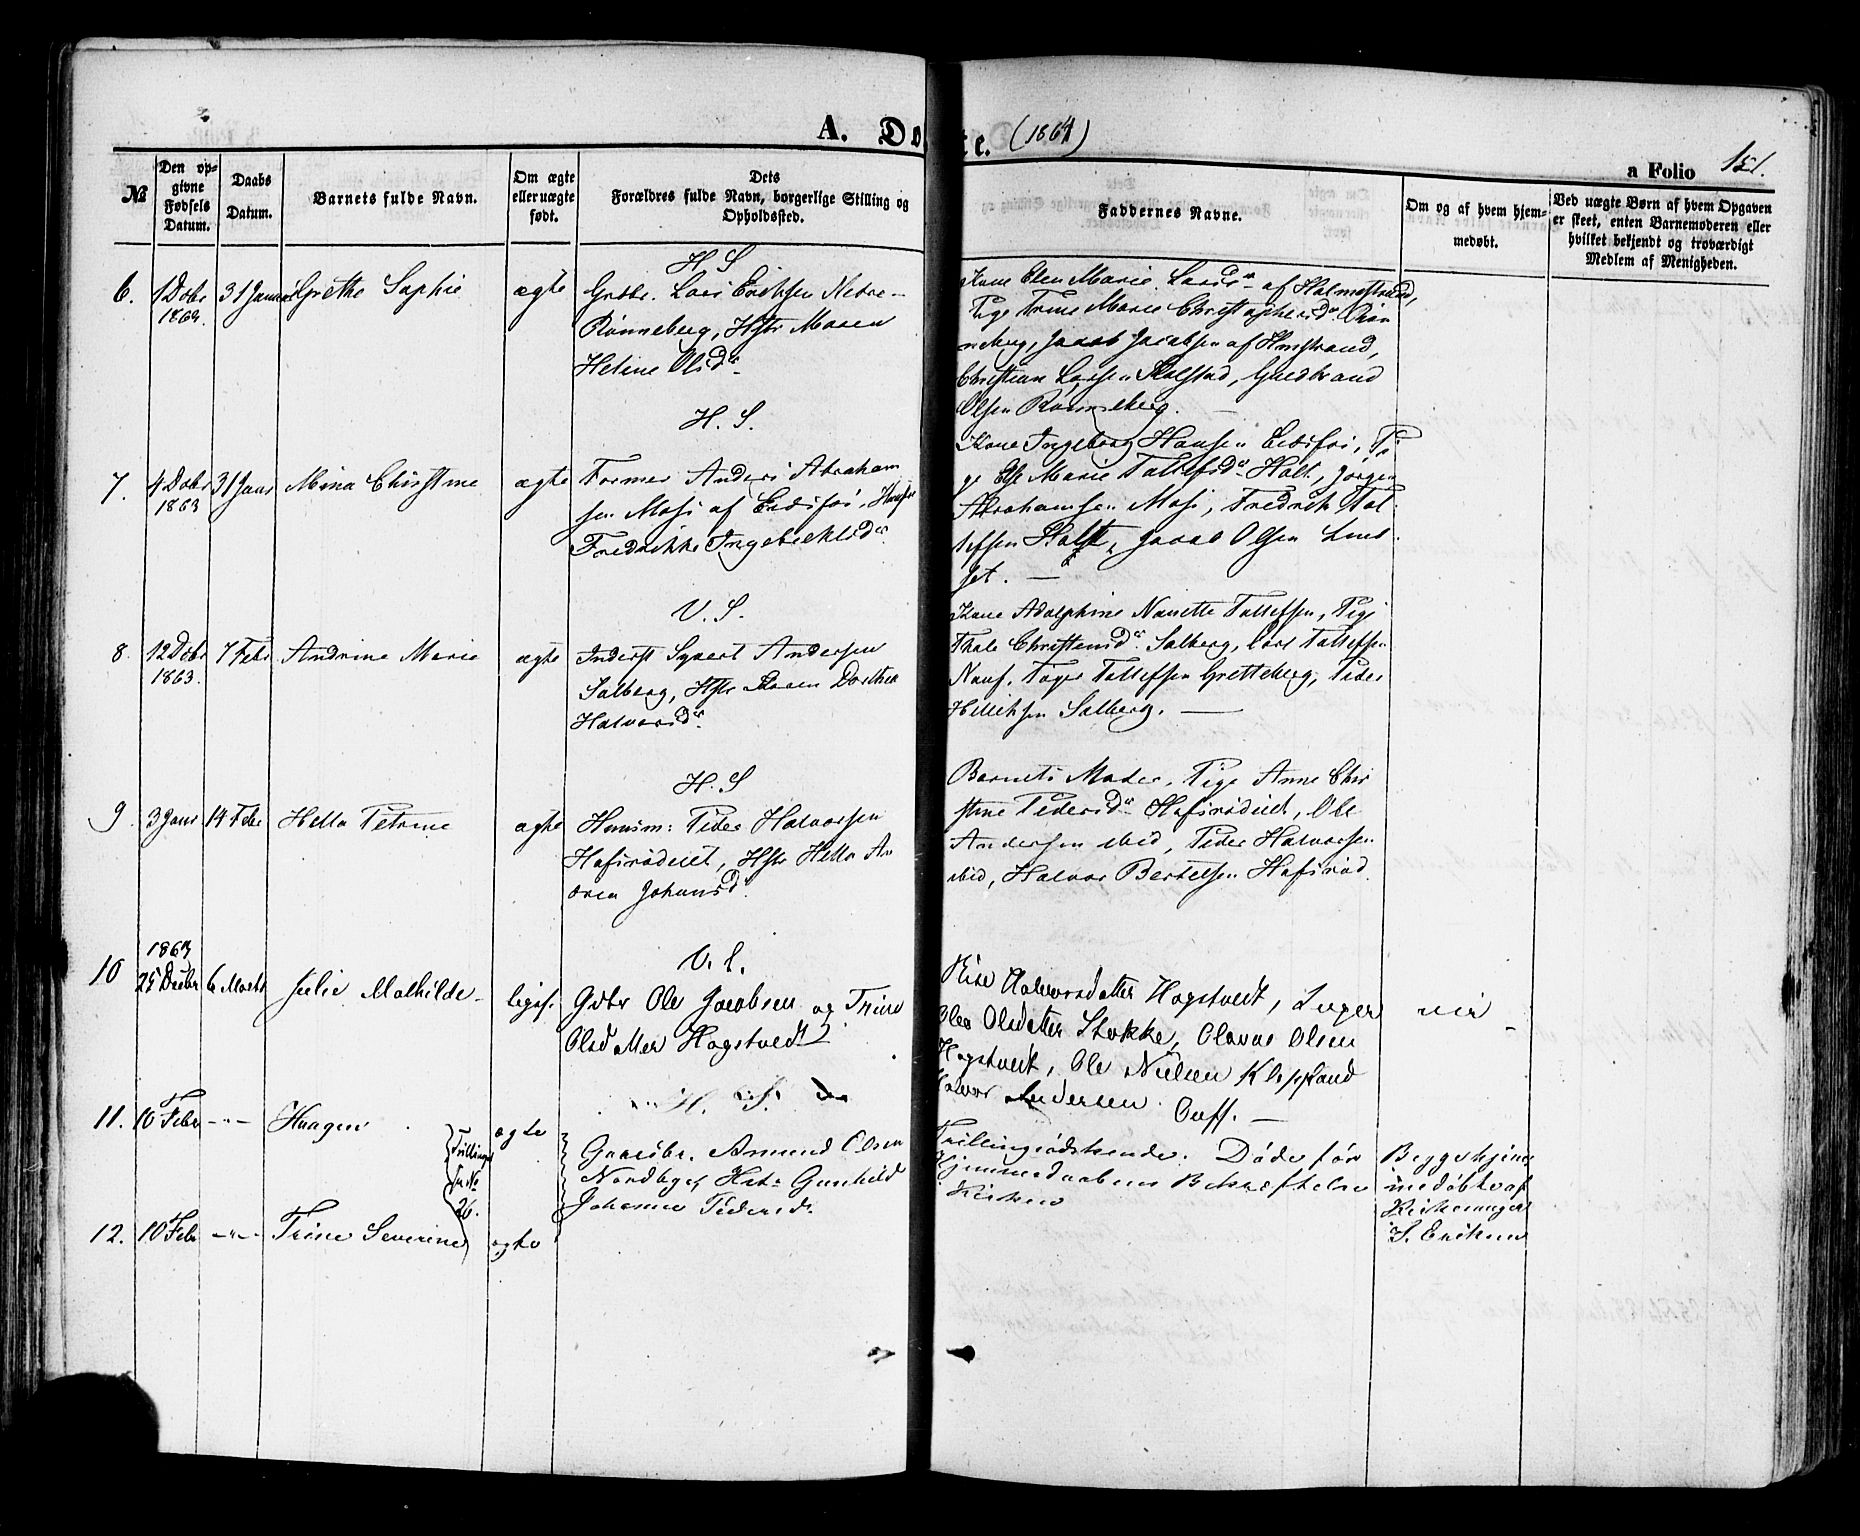 A. Dø te. (1864)
a Folio 151.
№
Den op-
givne
Fødsels
Datum.
Daabs
Datum.
Barnets fulde Navn.
Om ægte
eller uægte
født.
Dets
Forældres fulde Navn, borgerlige Stilling og
Opholdssted.
Faddernes Navne.
Om og af hvem hjem-
medøbt.
Ved uægte Børn af hvem Opgaven
er skeet, enten Barnemoderen eller
hvilket bekjendt og troværdigt
Medlem af Menigheden.
H. S
6. 1 Dcbr 31 Januar Grethe Sophie ægte Grdbr. Lars Eriksen Nedre
1863.
Rønneberg, Hstr Maren
Heline Olsdr
Kone Elen Marie Larsdr af Holmestrand,
Pige Trine Marie Christophersdr Røn
neberg, Jacob Jacobsen af Hmstrand,
Christian Larsen Skolstad, Guldbrand
Olsen Rønneberg.
H. S.
7. 4 Dcbr 31 Janr Mina Christine ægte Former Anders Abraham
1863
sen Moss af Eidsfos,
Fredrikke Ingebrektsdr
Kone Ingeborg Hansen Eidsfos, Pi
ge Else Marie Tollefsdr Holt, Jørgen
Abrahamsen Moss, Fredrik Tol
lefsen Holt, Jacob Olsen
set.
V. S.
8. 12 Dcbr 7 Febr Andrine Marie ægte Inderst Syvert Andersen
1863.
Solberg, Hstr Maren Dorthea
Halvorsdr
Kone Adolphine Nanette Tollefsen, Pige
Thale Christensdr Solberg, Lars Tollefsen
Nauf, Tollefsen Gretteberg, Peder
Solberg.
H. S
9. 3 Janr 14 Febr Hella Petrine ægte Huusm: Peder Halvorsen
Hafsrødeiet, Hstr Hella An
drea Johansdr
Barnets Moder, Pige Anne Chri
stine Pedersdr Hafsrødeiet, Ole
Andersen ibid, Peder Halvorsen
ibid, Halvor Bertelsen Hafsrød
V. S.
1863
10 25 Decbr 6 Marts Julie Mathilde Gdbr Ole Jacobsen og Trine
Olsdatter Hogstvedt
Halvorsdatter Hogstvedt, Inger
Olea Olsdatter Stokke, Olavus Olsen
Hogstvedt, Ole Nielsen Klopland
Halvor Andersen
nei
H. S.
11. 10 Febr -"- Haagen ægte
Trillinger
Gaardbr. Amund Olsen
Nordby, Hstr Gunhild
Johanne Pedersdr.
Trillingsødskende. Døde før
Hjemmedaabens Bekræftelse
Kirken
Begge hjem
medøbte af
Kirkesanger
S. Eriksen
26.
12. 10 Febr -"- Trine Severine ægte